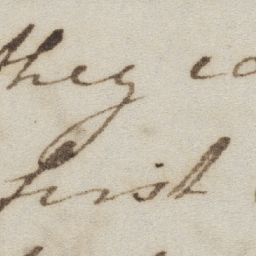 they co
first